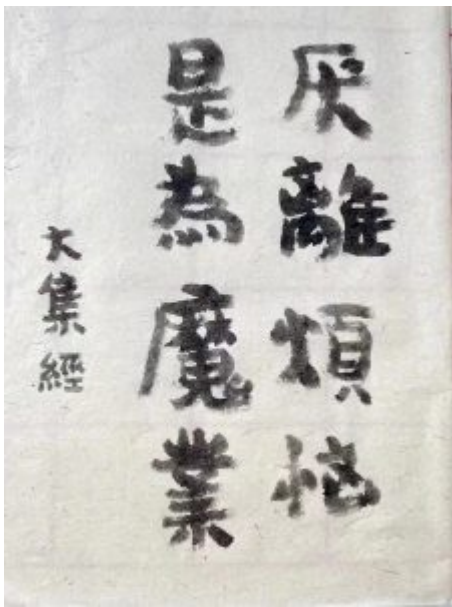 厌離煩悩
是為魔業
大集經